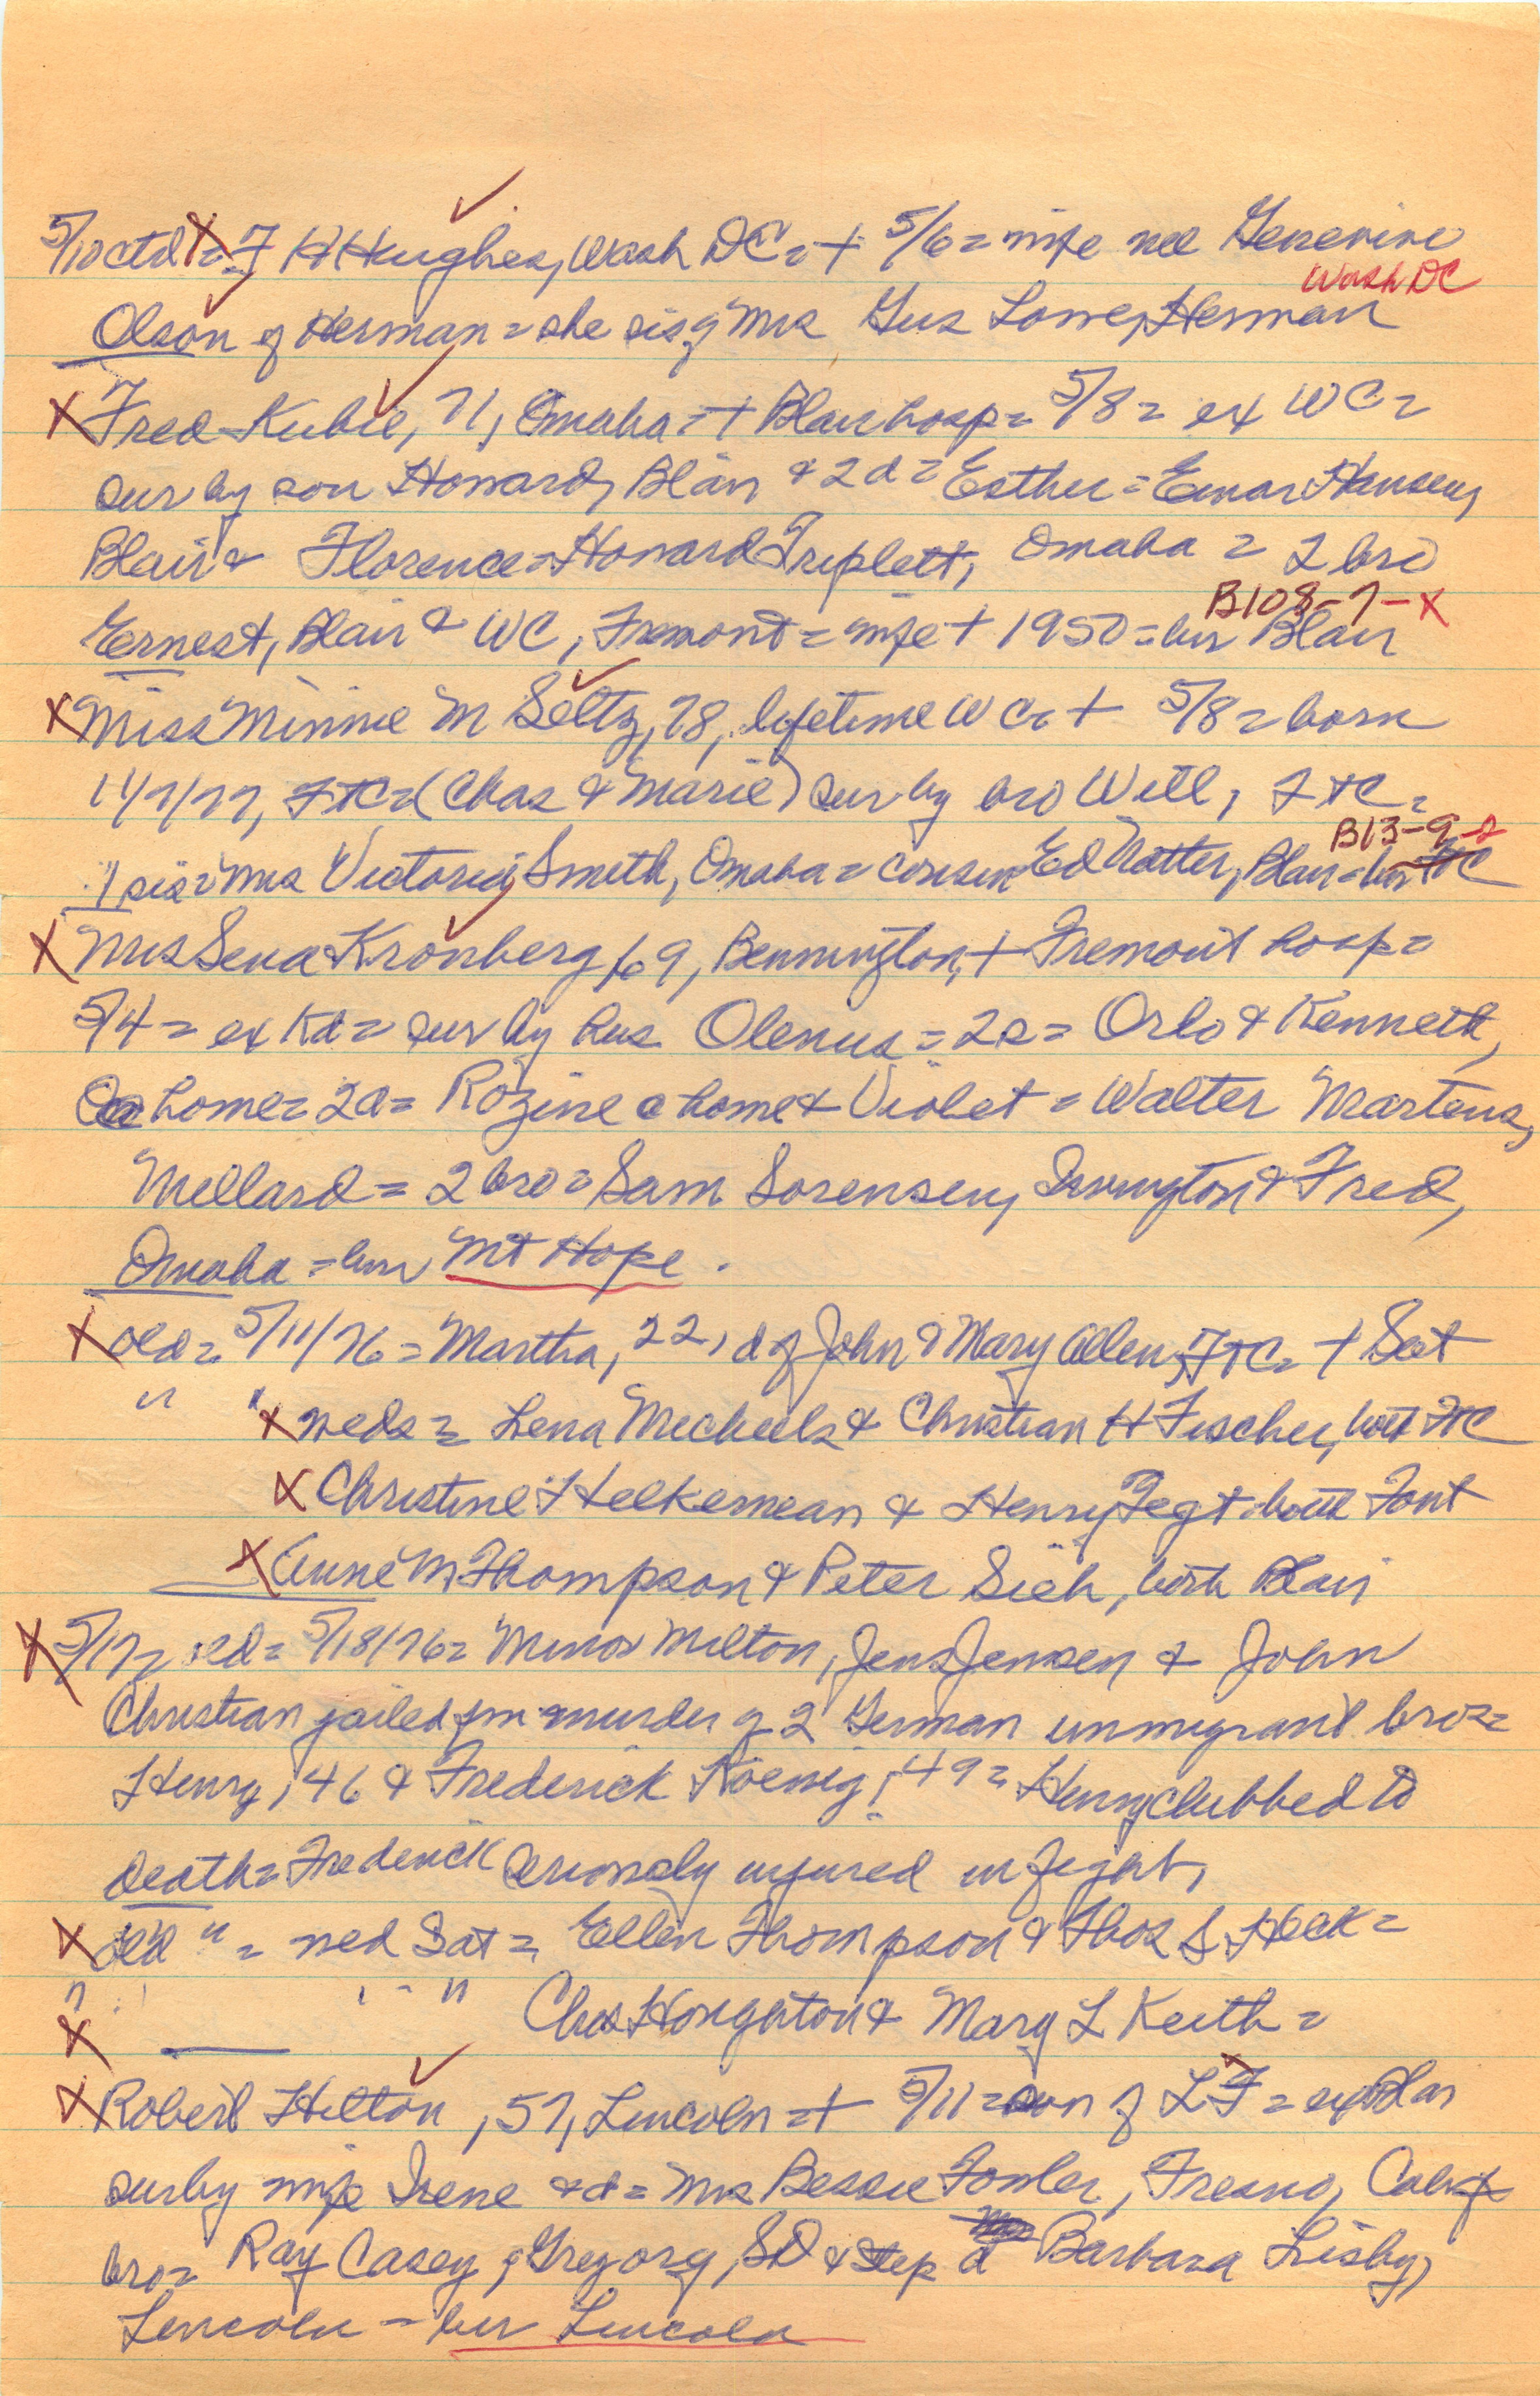 5/10 ctd = F H Hughes, Wash DC = + 5/6 = wife nee Genevive
Wash DC
Olson of Herman = she sis of Mrs Gus Lowe, Herman
Fred Kubie, 71, Omaha = + Blair hosp = 5/8 = ex WC =
sur by son Howard, Blair & 2 d = Esther = Einar Hansen,
Blair & Florence = Howard Triplett, Omaha = 2 bro
B108-7-X
Ernest, Blair & WC, Fremont = wife + 1950 = bur Blair
Miss Minnie M Seltz, 78, lifetime WC = + 5/8 = born
11/7/77, FtC = (Chas & Marie) sur by bro Will, FtC =
B13-9-2
1 sis = Mrs Victoria Smith, Omaha = cousin Ed Matter, Blair = bur FtC
Mrs Sena Kronberg, 69, Bennington, + Fremont hosp =
5/4 = ex Kd = sur by hus Olenus = 2s = Orlo & Kenneth,
@ home = 2d = Rozine @ home & Violet = Walter Martens,
Millard = 2 bro = Sam Sorensen, Irvington & Fred,
Omaha = bur Mt Hope.
Old = 5/11/76 = Martha, 22, d of John & Mary Allen, FTC = + Sat
" " weds = Lena Mecheels & Christian H Fischer, both FTC
Christine Helkemean & Henry Tegt both Font
Anne M Thompson & Peter Sieh, both Blair
5/17 = old = 5/18/76 = Minor Milton, Jens Jensen & John
Christian jailed for murder of 2 German immigrant bros =
Henry, 46 & Frederick Koenig, 49 = Henry clubbed to
death = Frederick seriously injured in fight,
Old " = wed Sat = Ellen Thompson & Thos S Heck =
" " " Chas Houghton & Mary L Keith =
Robert Hilton, 57, Lincoln = + 5/11 = son of L F = ex Blair
sur by wife Irene & d = Mrs Bessie Fowler, Fresno, Calif
bro = Ray Casey, Gregory, SD & step d Barbara Lisby,
Lincoln - bur Lincoln